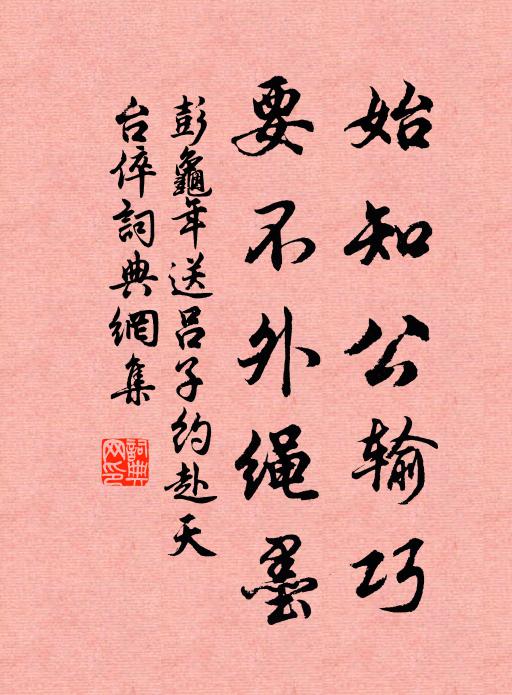 始知公输巧
要不外绳墨
彭龜年送吕子约赴天
台倅詞典網集
詞典
网印